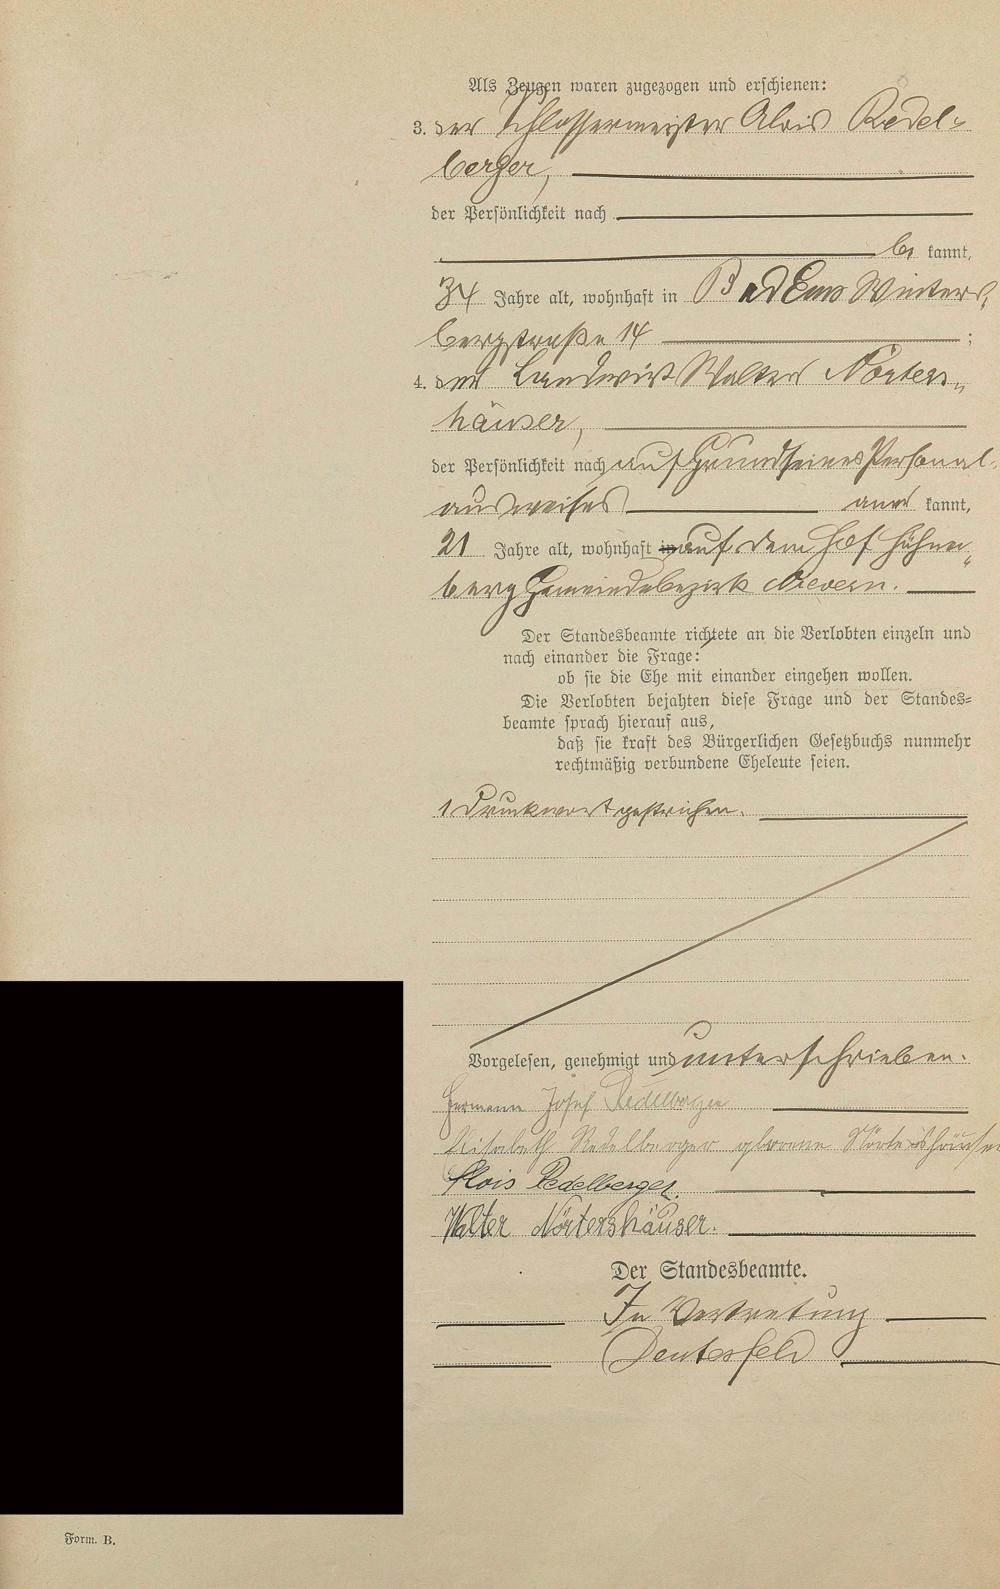 Als Zeugen waren zugezogen und erschienen:
3. der Schlossermeister Alois Redel-
berger,
der Persönlichkeit nach
be kannt,
34 Jahre alt, wohnhaft in Bad Ems Winters-
bergstraße 14 ;
4. der Landwirt Walter Nörters-
häuser,
der Persönlichkeit nach auf Grund seines Personal-
ausweises aner kannt,
21 Jahre alt, wohnhaft in auf dem Hof Hühner-
berg Gemeindebezirk Nievern.
Der Standesbeamte richtete an die Verlobten einzeln und
nach einander die Frage:
ob sie die Ehe mit einander eingehen wollen.
Die Verlobten bejahten diese Frage und der Standes-
beamte sprach hierauf aus,
daß sie kraft des Bürgerlichen Gesetzbuchs nunmehr
rechtmäßig verbundene Eheleute seien.
1 Druckwort gestrichen.
Vorgelesen, genehmigt und unterschrieben.
Hermann Josef Redelberger
Elisabeth Redelberger geborene Nörtershäuser
Alois Redelberger.
Walter Nörtershäuser.
Der Standesbeamte.
In Vertretung
Deutesfeld
Form. B.